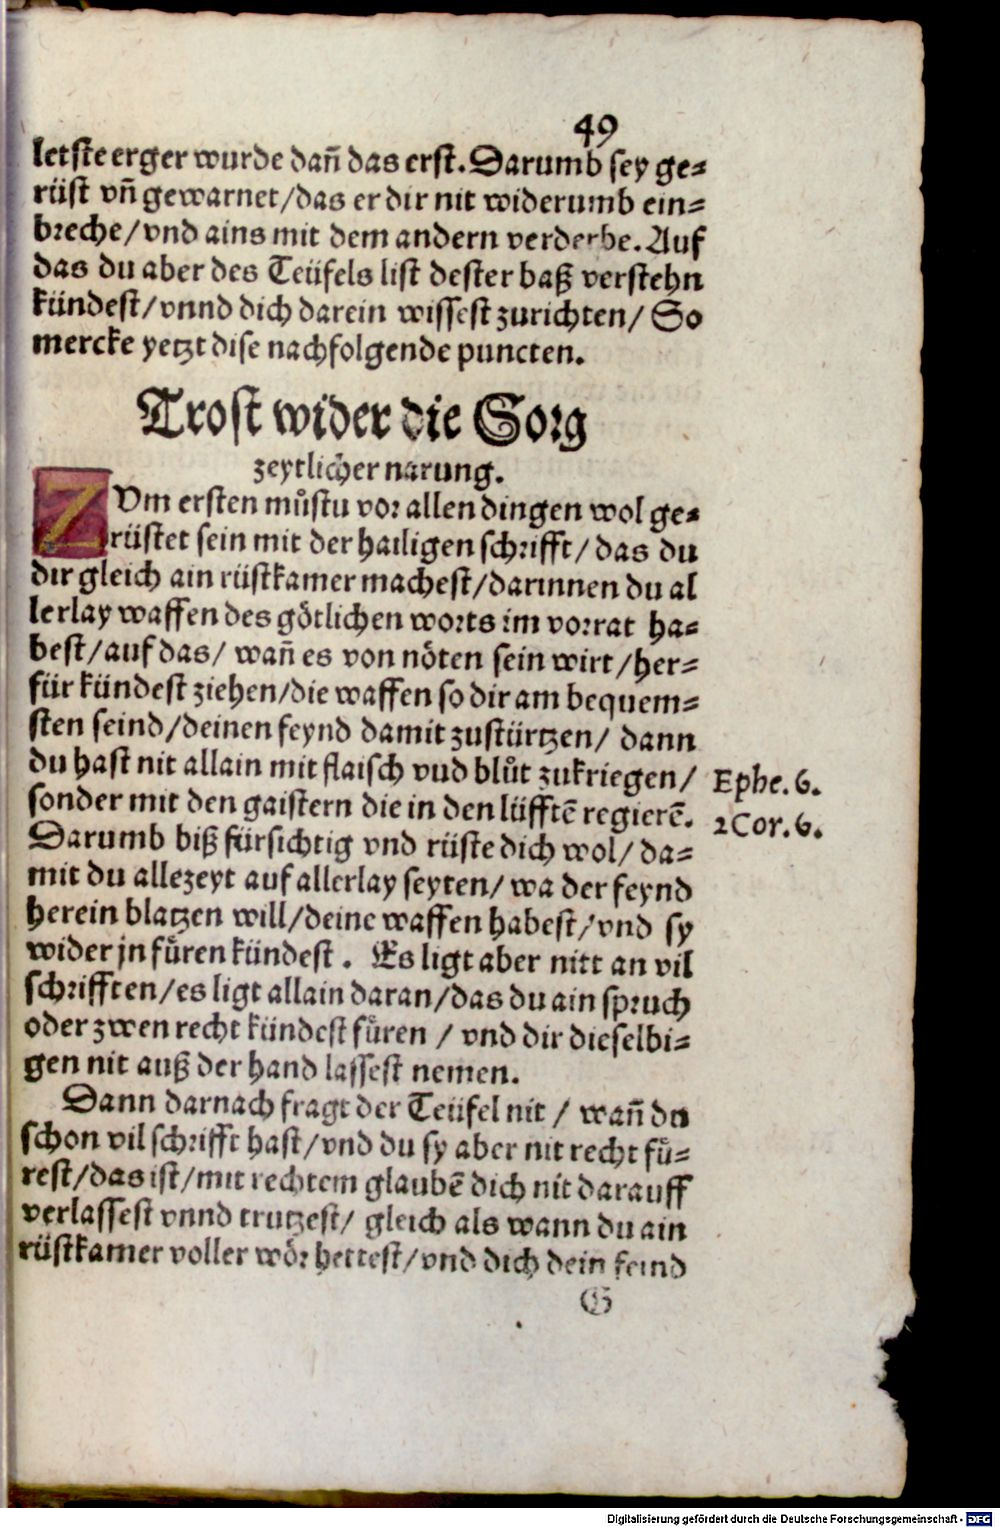 49
letste erger wurde dañ das erst. Darumb sey ge⸗
rüst vñ gewarnet/das er dir nit widerumb ein⸗
breche/vnd ains mit dem andern verderbe. Auf
das du aber des Teüfels list dester baß verstehn
kündest/vnnd dich darein wissest zurichten/ So
mercke yetzt dise nachfolgende puncten.
Trost wider die Sorg
zeytlicher narung.
ZVm ersten můstu vor allen dingen wol ge⸗
rüstet sein mit der hailigen schrifft/ das du
dir gleich ain rüstkamer machest/darinnen du al
lerlay waffen des götlichen worts im vorrat ha⸗
best/auf das/ wañ es von nöten sein wirt/her⸗
für kündest ziehen/die waffen so dir am bequem⸗
sten seind/deinen feynd damit zustürtzen/ dann
du hast nit allain mit flaisch vud blůt zukriegen/
sonder mit den gaistern die in den lüfftẽ regierẽ.
Darumb biß fürsichtig vnd rüste dich wol/ da⸗
mit du allezeyt auf allerlay seyten/ wa der feynd
herein blatzen will/deine waffen habest/vnd sy
wider jn fůren kündest. Es ligt aber nitt an vil
schrifften/es ligt allain daran/das du ain spruch
oder zwen recht kündest fůren / vnd dir dieselbi⸗
gen nit auß der hand lassest nemen.
Dann darnach fragt der Teüfel nit / wañ du
schon vil schrifft hast/vnd du sy aber nit recht fů⸗
rest/das ist/mit rechtem glaubẽ dich nit darauff
verlassest vnnd trutzest/ gleich als wann du ain
rüstkamer voller wör hettest/vnd dich dein feind
G
Ephe. 6.
2Cor. 6.
Digitalisierung gefördert durch die Deutsche Forschungsgemeinschaft - DFG